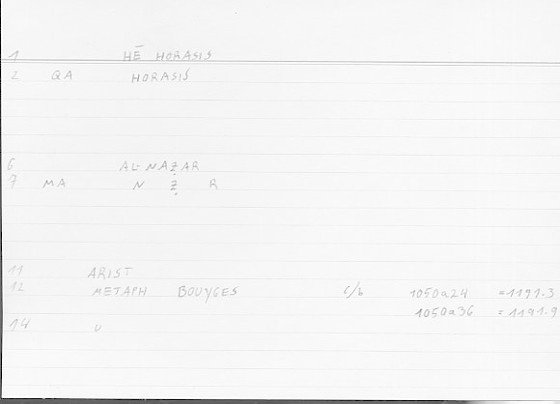 1 HĒ HORASIS
2 QA HORASIS
6 AL-NAẒAR
7 MA N Ẓ R
11 ARIST
12 METAPH BOUYGES c/b 1050a24 =1191.3
1050a36 =1191.9
14 U